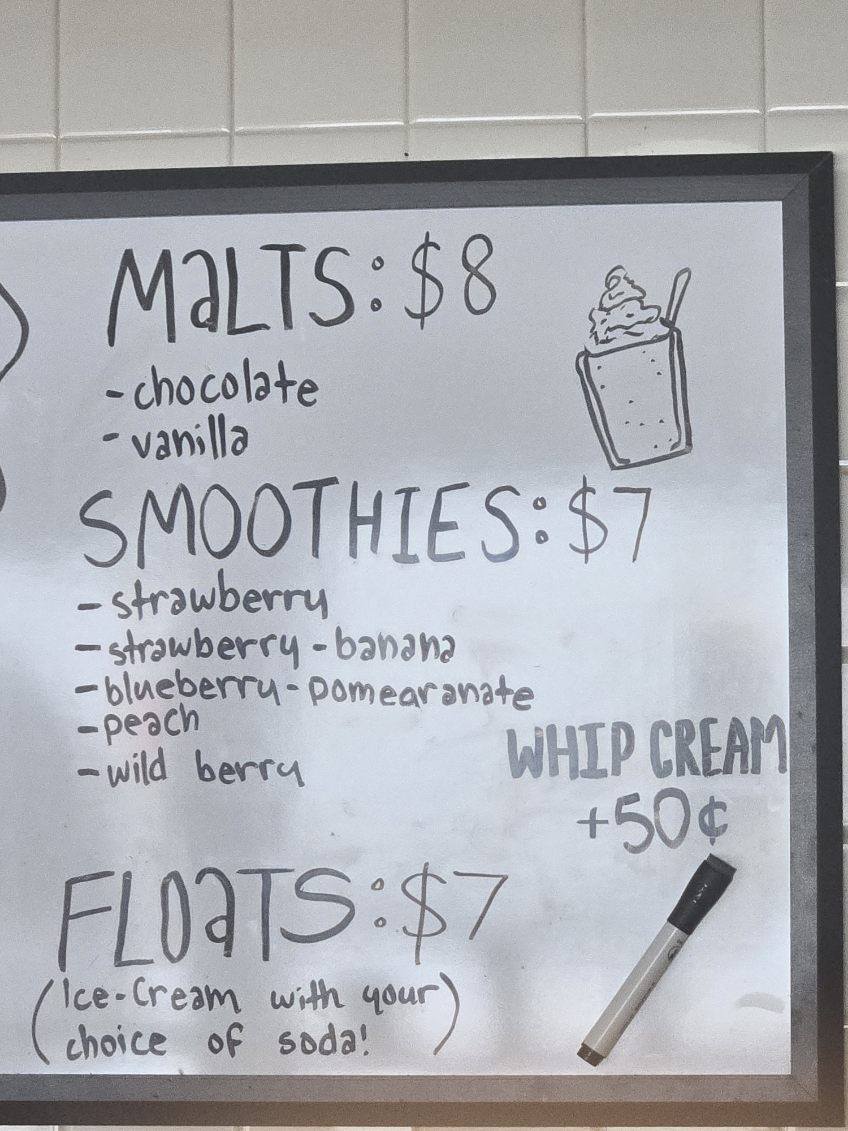 MaLTS: $8
- chocolate
- vanilla
SMOOTHIES: $7
- strawberry
- strawberry - banana
- blueberry - pomearanate
- peach
- wild berry
WHIP CREAM
+50¢
FLOaTS: $7
(Ice-Cream with your
choice of soda!)